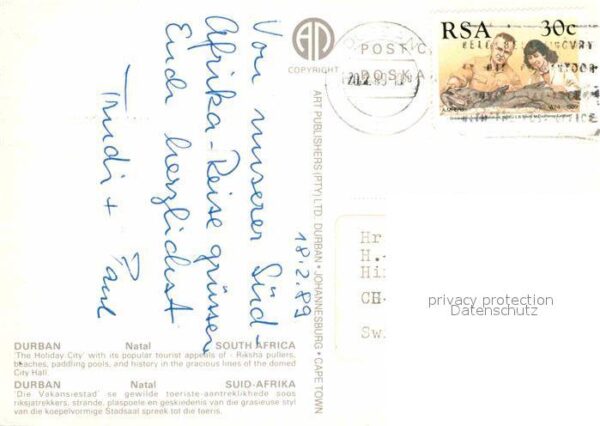 Von unserer Süd-
Afrika-Reise grüssen
Euch herzlichst
Trudi + Paul
18.2.89
COPYRIGHT
ART PUBLISHERS (PTY) LTD. DURBAN • JOHANNESBURG • CAPE TOWN
POST C
POSKA
RSA 30c
Hr
H.
Hi
CH-
Sw
privacy protection
Datenschutz
DURBAN Natal SOUTH AFRICA
'The Holiday City' with its popular tourist appeals of - Riksha pullers,
beaches, paddling pools, and history in the gracious lines of the domed
City Hall.
DURBAN Natal SUID-AFRIKA
'Die Vakansiestad' se gewilde toeriste-aantreklikhede soos
riksjatrekkers, strande, plaspoele en geskiedenis van die grasieuse styl
van die koepelvormige Stadsaal spreek tot die toeris.